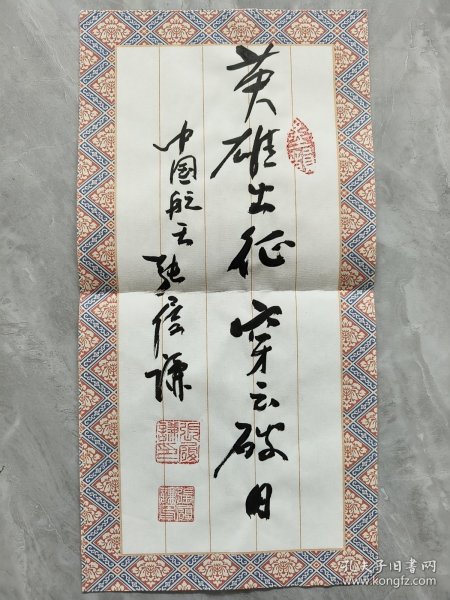 英雄出征 穿云破日
中国航天 张履谦
孔夫子旧书网
www.kongfz.com